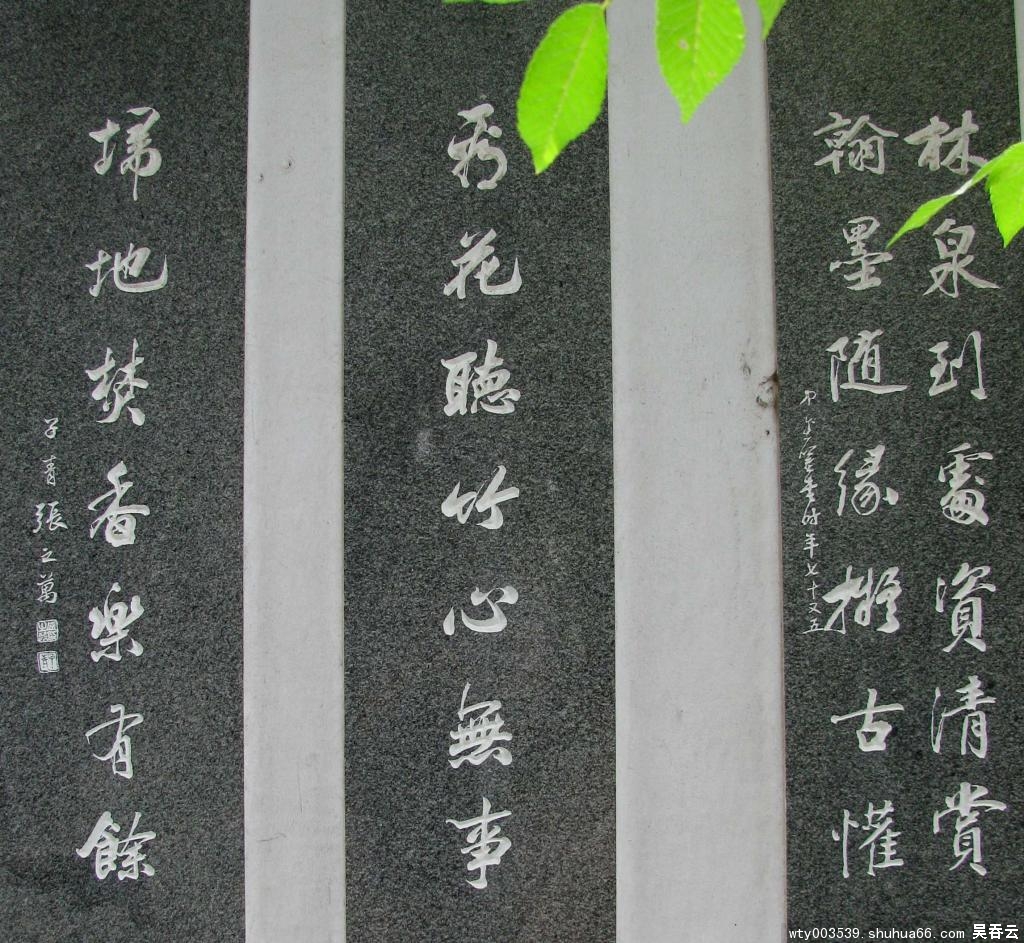 林泉到處資清賞
翰墨随緣擬古懽
時年七十又五
看花聽竹心無事
埽地焚香樂有餘
子青張之萬
wty003539.shuhua66.com 吴吞云